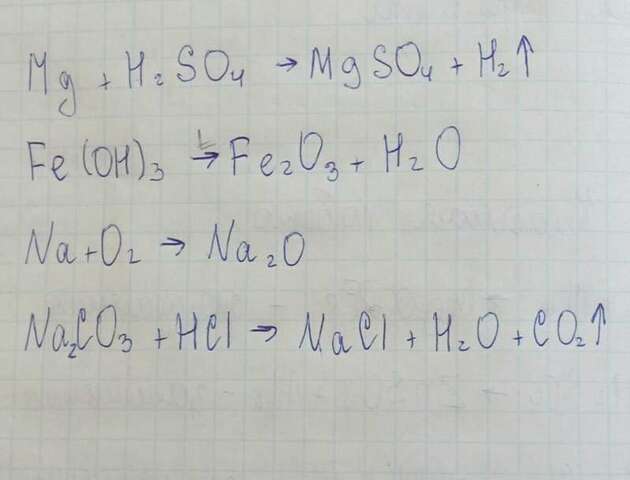 Mg + H₂SO₄ → MgSO₄ + H₂↑
Fe(OH)₃ →ᵗ Fe₂O₃ + H₂O
Na + O₂ → Na₂O
Na₂CO₃ + HCl → NaCl + H₂O + CO₂↑